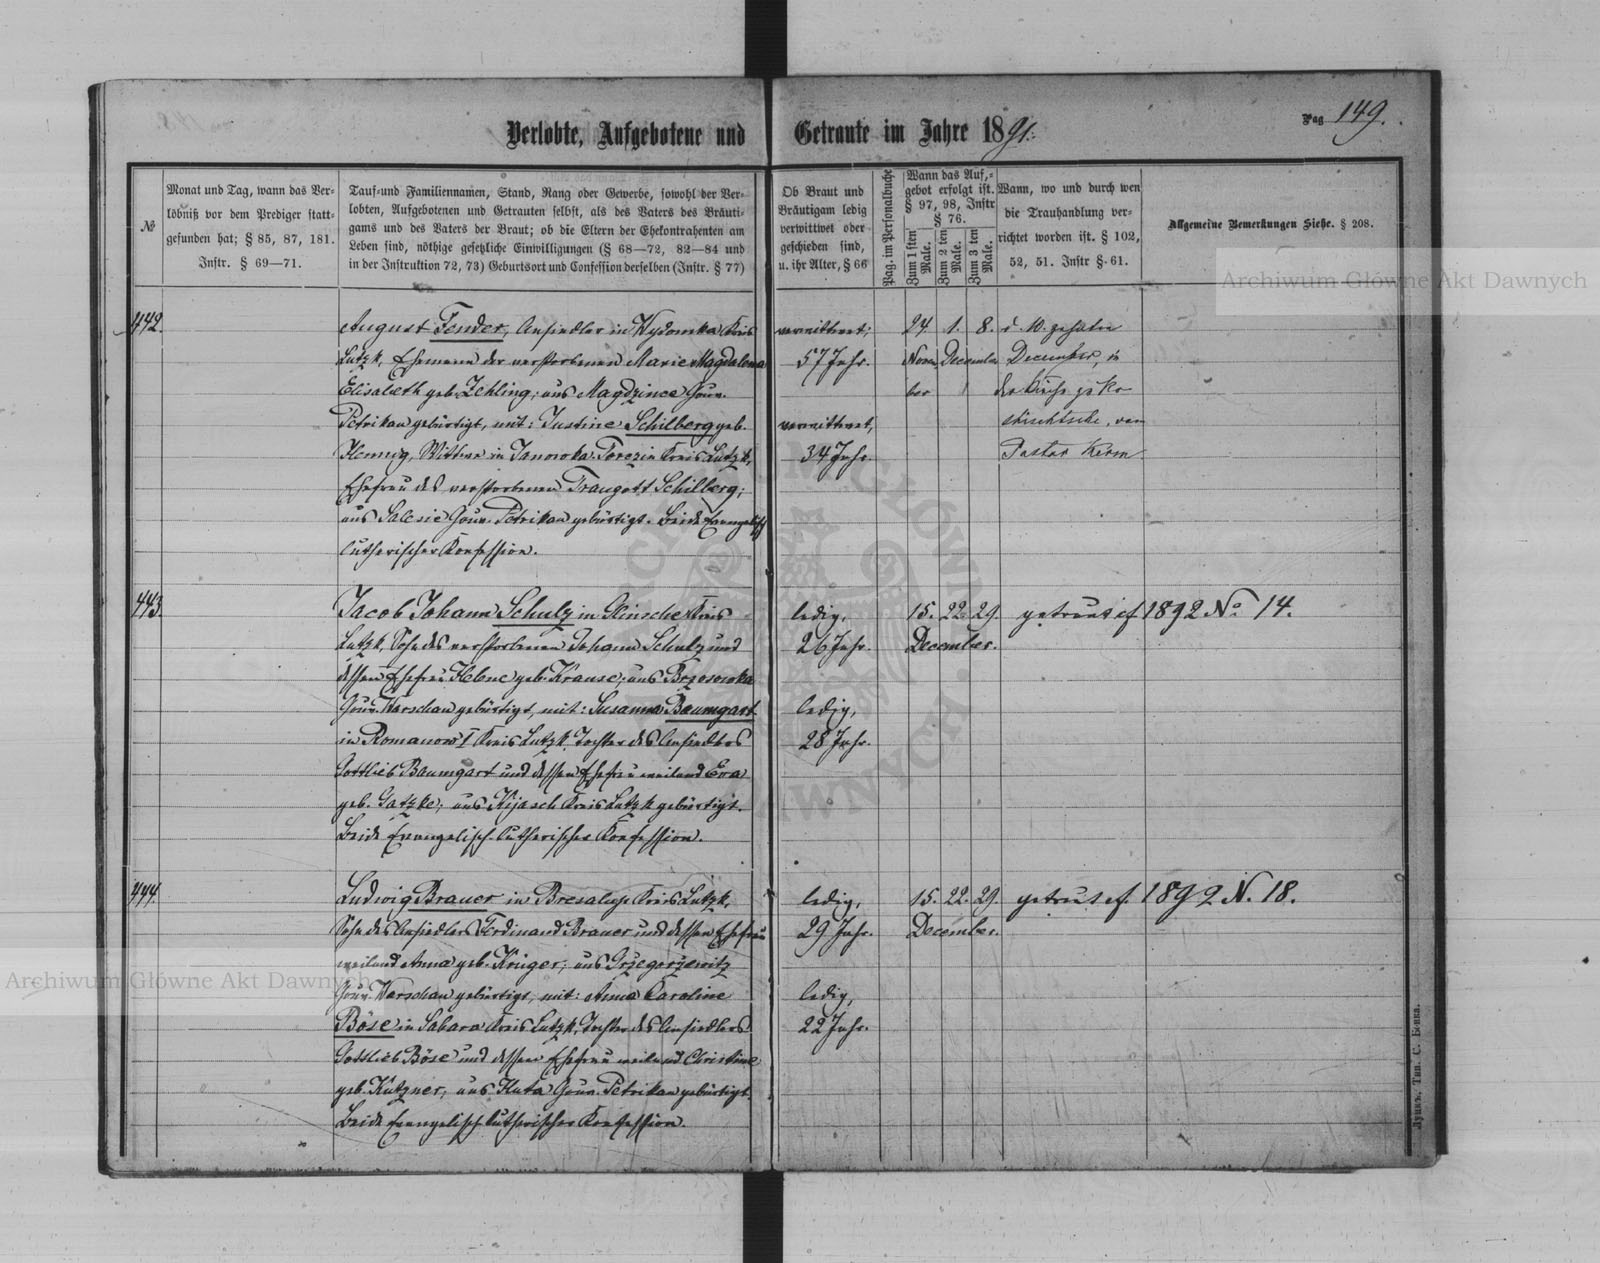 Verlobte, Aufgebotene und Getraute im Jahre 1891.
Pag 149.
№
Monat und Tag, wann das Ver-
löbniß vor dem Prediger statt-
gefunden hat; § 85, 87, 181.
Instr. § 69—71.
Tauf- und Familiennamen, Stand, Rang oder Gewerbe, sowohl der Ver-
lobten, Aufgebotenen und Getrauten selbst, als des Vaters des Bräuti-
gams und des Vaters der Braut; ob die Eltern der Ehekontrahenten am
Leben sind, nöthige gesetzliche Einwilligungen (§ 68—72, 82—84 und
in der Instruktion 72, 73) Geburtsort und Confession derselben (Instr. § 77)
Ob Braut und
Bräutigam ledig
verwittwet oder
geschieden sind,
u. ihr Alter, § 66
Pag. im Personalbuche
Wann das Auf-
gebot erfolgt ist.
§ 97, 98, Instr
§ 76.
Zum 1sten Male.
Zum 2 ten Male.
Zum 3 ten Male.
Wann, wo und durch wen
die Trauhandlung ver-
richtet worden ist. § 102,
52, 51. Instr §. 61.
Allgemeine Bemerkungen Siehe. § 208.
442.
August Fender, Ansiedler in Wydomka Kreis
Lutzk, Ehemann der verstorbenen Marie Magdalena
Elisabeth geb. Zehling; aus Magdzince Gouv.
Petrikau gebürtigt, mit: Justine Schilberg geb.
Hennig, Wittwe in Janowka-Torezin Kreis Lutzk,
Ehefrau des verstorbenen Traugott Schilberg;
aus Salesie Gouv. Petrikau gebürtigt. Beide Evangelisch
lutherischer Konfession.
verwittwet,
57 Jahr.
verwittwet,
34 Jahr.
24 1. 8.
Novem December
ber
d. 10. zehnten
December, in
der Kirche zu Ro
schischtsche, von
Pastor Kerm
443.
Jacob Johann Schulz in Glinsche Kreis
Lutzk, Sohn des verstorbenen Johann Schulz und
dessen Ehefrau Helene geb. Krause; aus Brzosowka
Gouv. Warschau gebürtigt, mit: Susanna Baumgart
in Romanow I Kreis Lutzk, Tochter des Ansiedlers
Gottlieb Baumgart und dessen Ehefrau weiland Eva
geb. Gatzke; aus Kijasch Kreis Lutzk gebürtigt.
Beide Evangelisch-lutherischer Konfession.
ledig,
26 Jahr.
ledig,
28 Jahr.
15. 22. 29.
December.
getraut cf. 1892 No. 14.
444.
Ludwig Brauer in Bresaluge Kreis Lutzk,
Sohn des Ansiedlers Ferdinand Brauer und dessen Ehefrau
weiland Anna geb. Krüger; aus Grzegorzewitz
Gouv. Warschau gebürtigt, mit: Anna Karoline
Böse in Sabara Kreis Lutzk, Tochter des Ansiedlers
Gottlieb Böse und dessen Ehefrau weiland Christine
geb. Kutzner; aus Huta Gouv. Petrikau gebürtigt.
Beide Evangelisch lutherischer Konfession.
ledig,
29 Jahr.
ledig,
22 Jahr.
15. 22. 29.
December.
getraut cf. 1892 N. 18.
Archiwum Główne Akt Dawnych
Archiwum Główne Akt Dawnych
Луцкъ, Тип. С. Бенка.